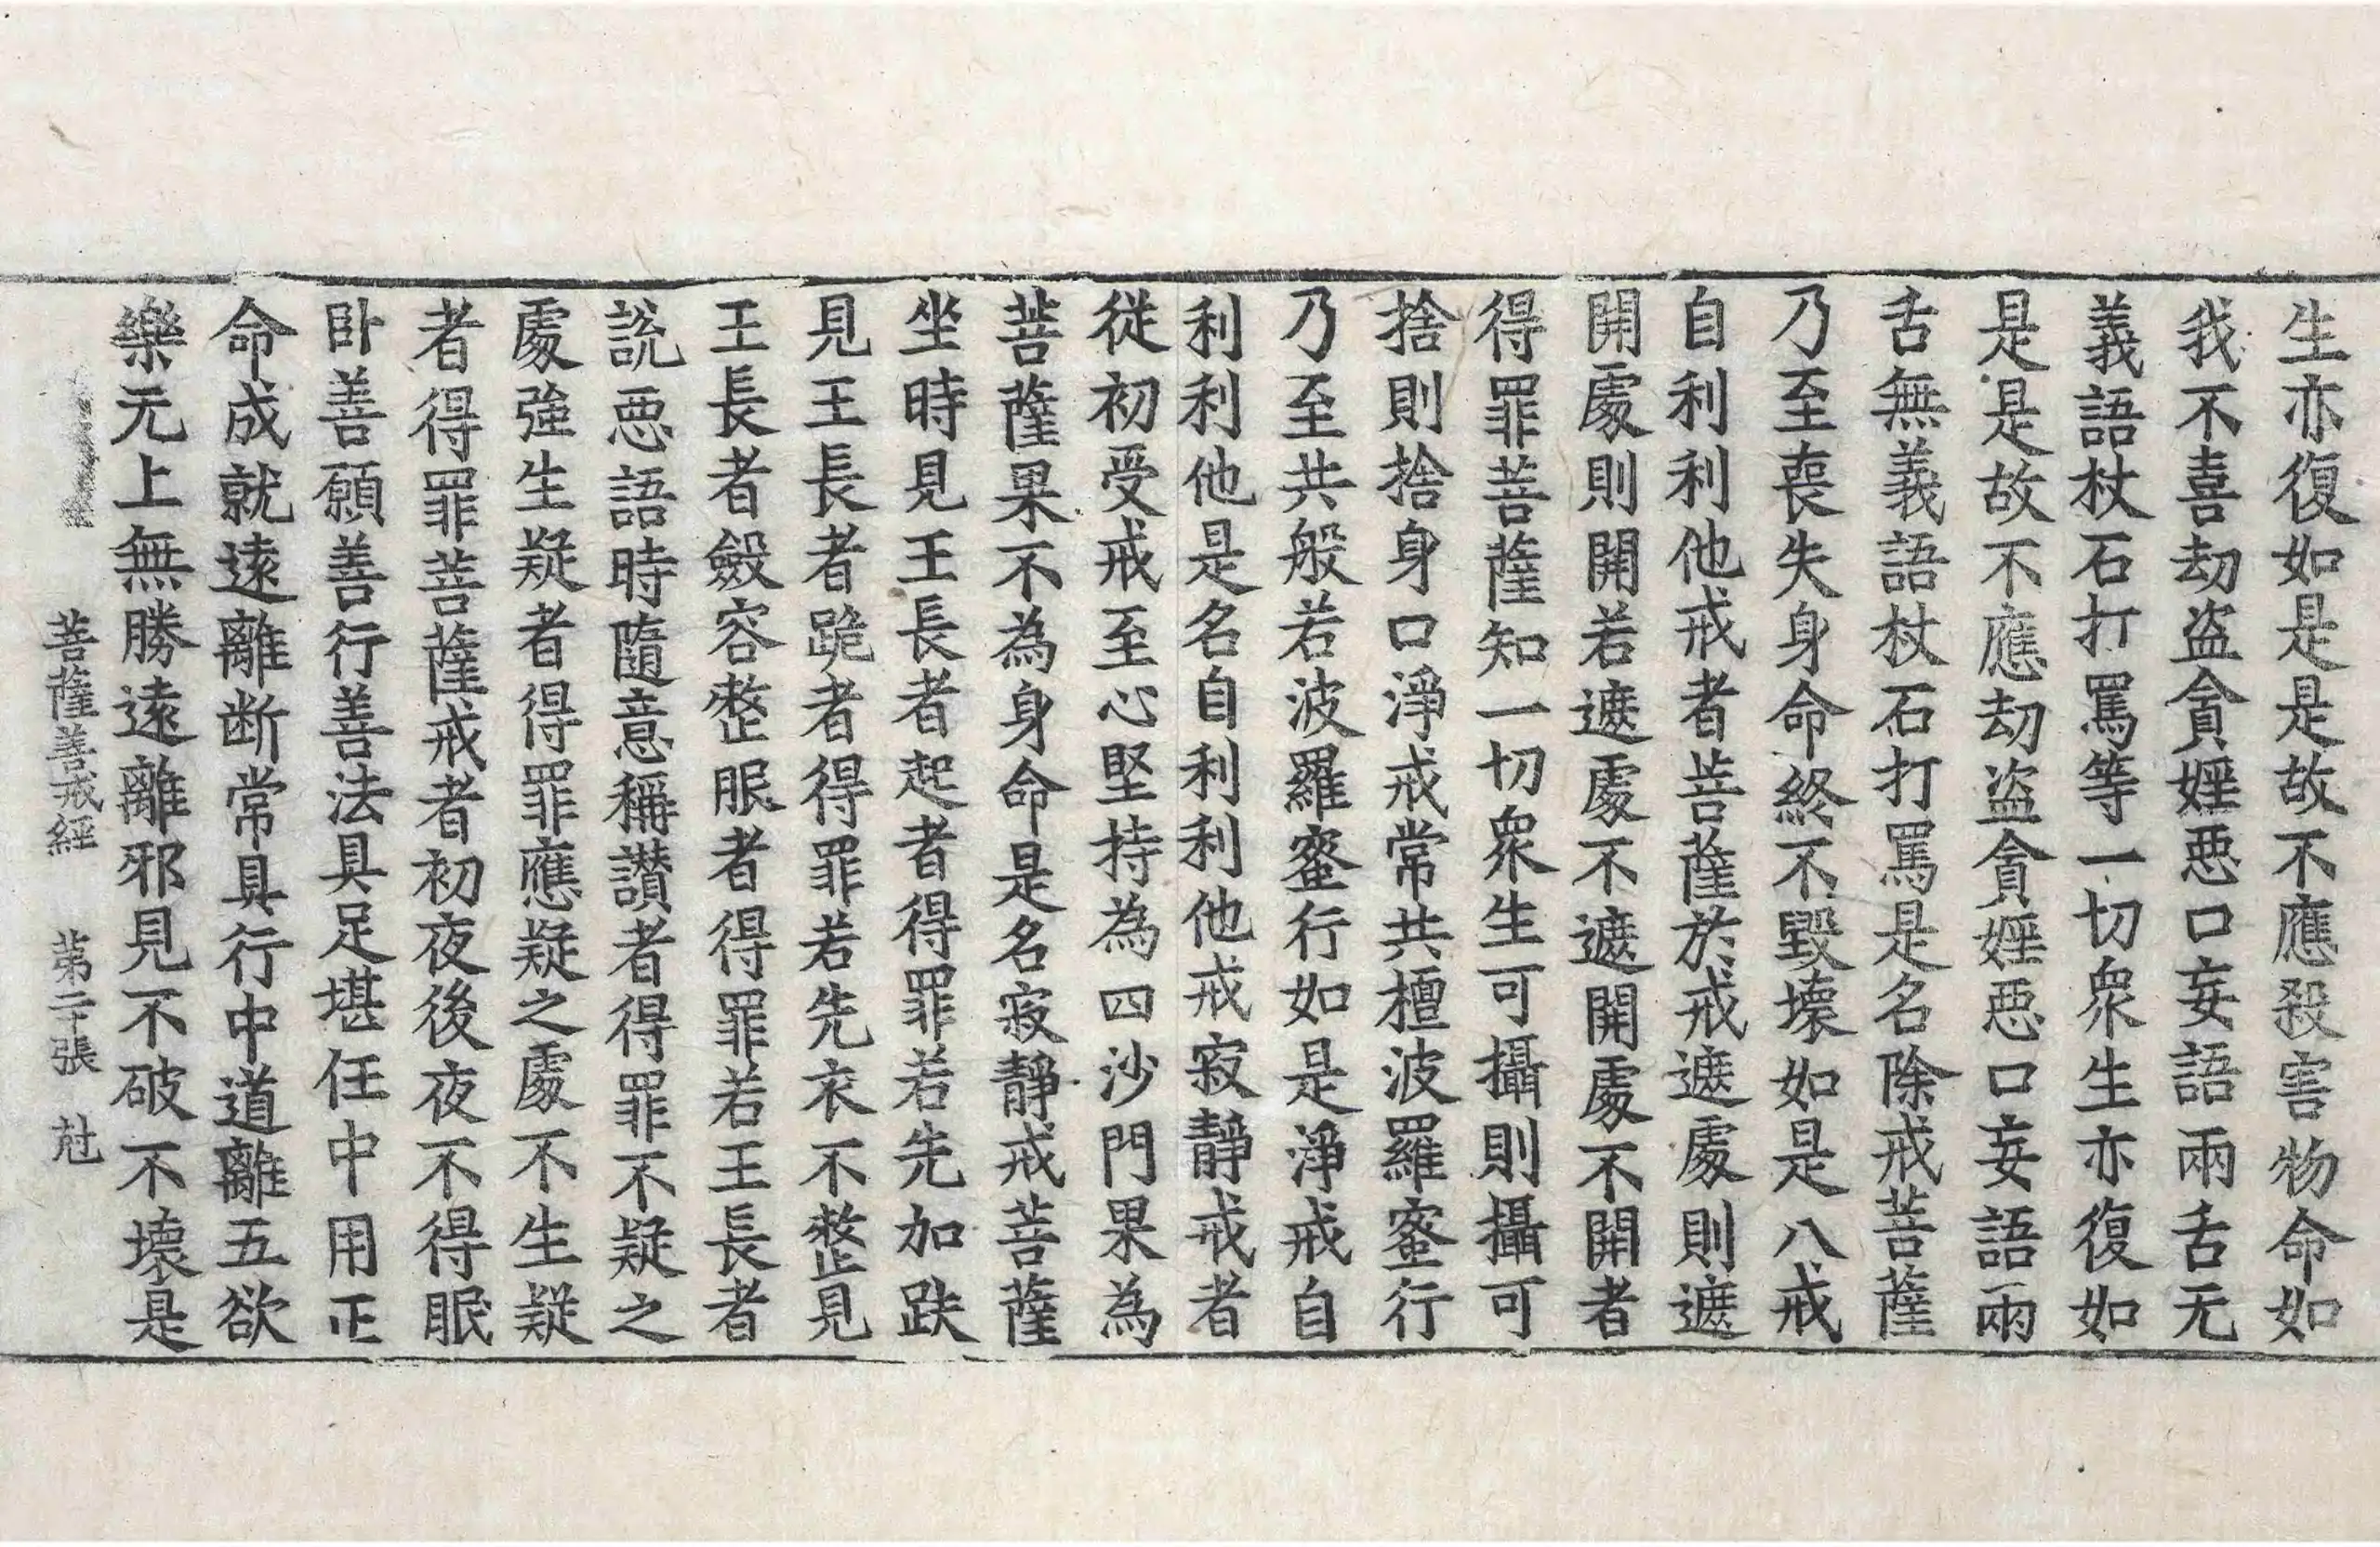 生亦復如是是故不應殺害物命如
我不喜劫盗貪婬惡口妄語兩舌无
義語杖石打罵等一切衆生亦復如
是是故不應劫盗貪婬惡口妄語兩
舌無義語杖石打罵是名除戒菩薩
乃至喪失身命終不毀壞如是八戒
自利利他戒者菩薩於戒遮處則遮
開處則開若遮處不遮開處不開者
得罪菩薩知一切衆生可攝則攝可
捨則捨身口淨戒常共檀波羅蜜行
乃至共般若波羅蜜行如是淨戒自
利利他是名自利利他戒寂靜戒者
從初受戒至心堅持為四沙門果為
菩薩果不為身命是名寂靜戒菩薩
坐時見王長者起者得罪若先加趺
見王長者跪者得罪若先衣不整見
王長者斂容整服者得罪若王長者
說惡語時隨意稱讃者得罪不疑之
處強生疑者得罪應疑之處不生疑
者得罪菩薩戒者初夜後夜不得眠
卧善願善行善法具足堪任中用正
命成就遠離断常具行中道離五欲
樂无上無勝遠離邪見不破不壞是
菩薩善戒經 第二十張 尅